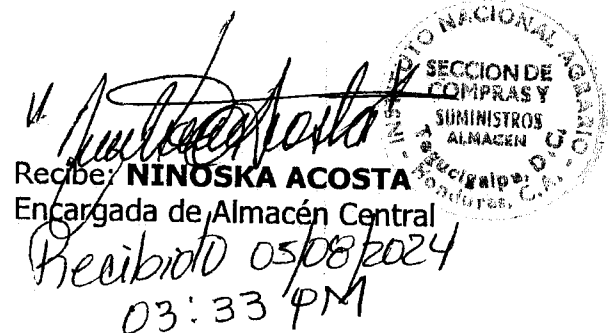 INSTITUTO NACIONAL AGRARIO
SECCION DE
COMPRAS Y
SUMINISTROS
ALMACEN
Tegucigalpa, D.C.
Honduras, C.A.
Recibe: NINOSKA ACOSTA
Encargada de Almacén Central
Recibido 05/08/2024
03:33 PM